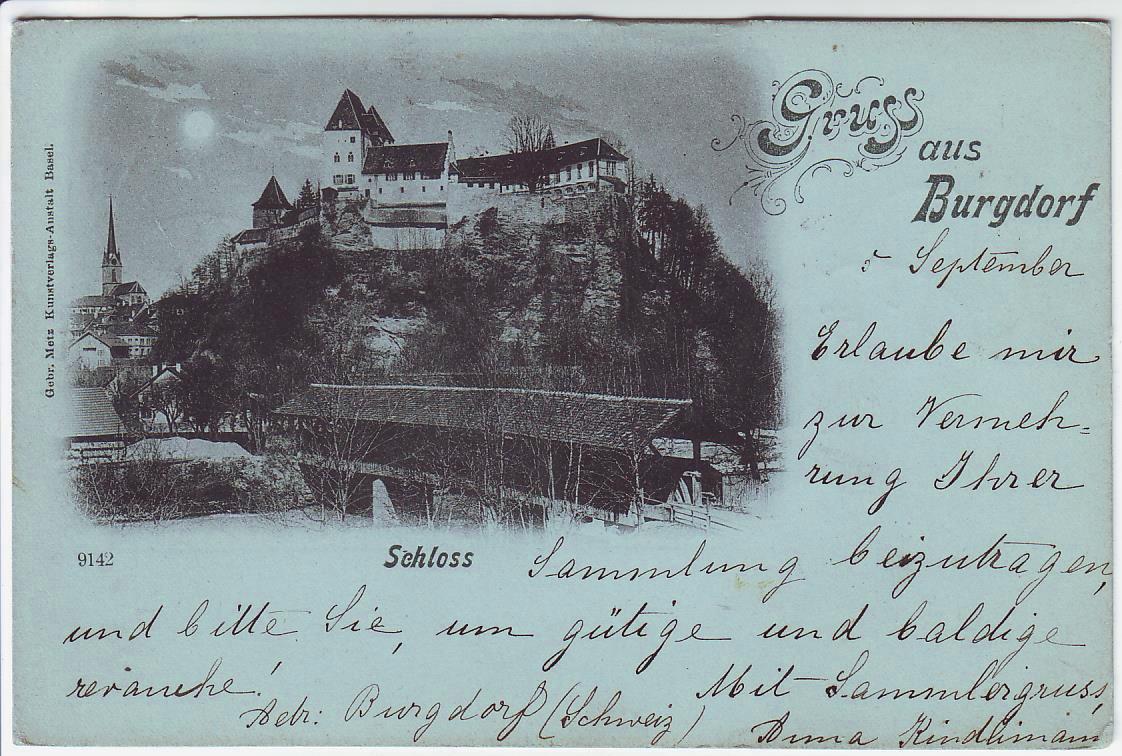 Gruss
aus
Burgdorf
5 September
Erlaube mir
zur Vermeh=
rung Ihrer
Sammlung beizutragen,
und bitte Sie, um gütige und baldige
revanche!
Mit Sammlergruss,
Adr: Burgdorf (Schweiz)
Anna Kindlimann
Schloss
9142
Gebr. Metz Kunstverlags-Anstalt Basel.